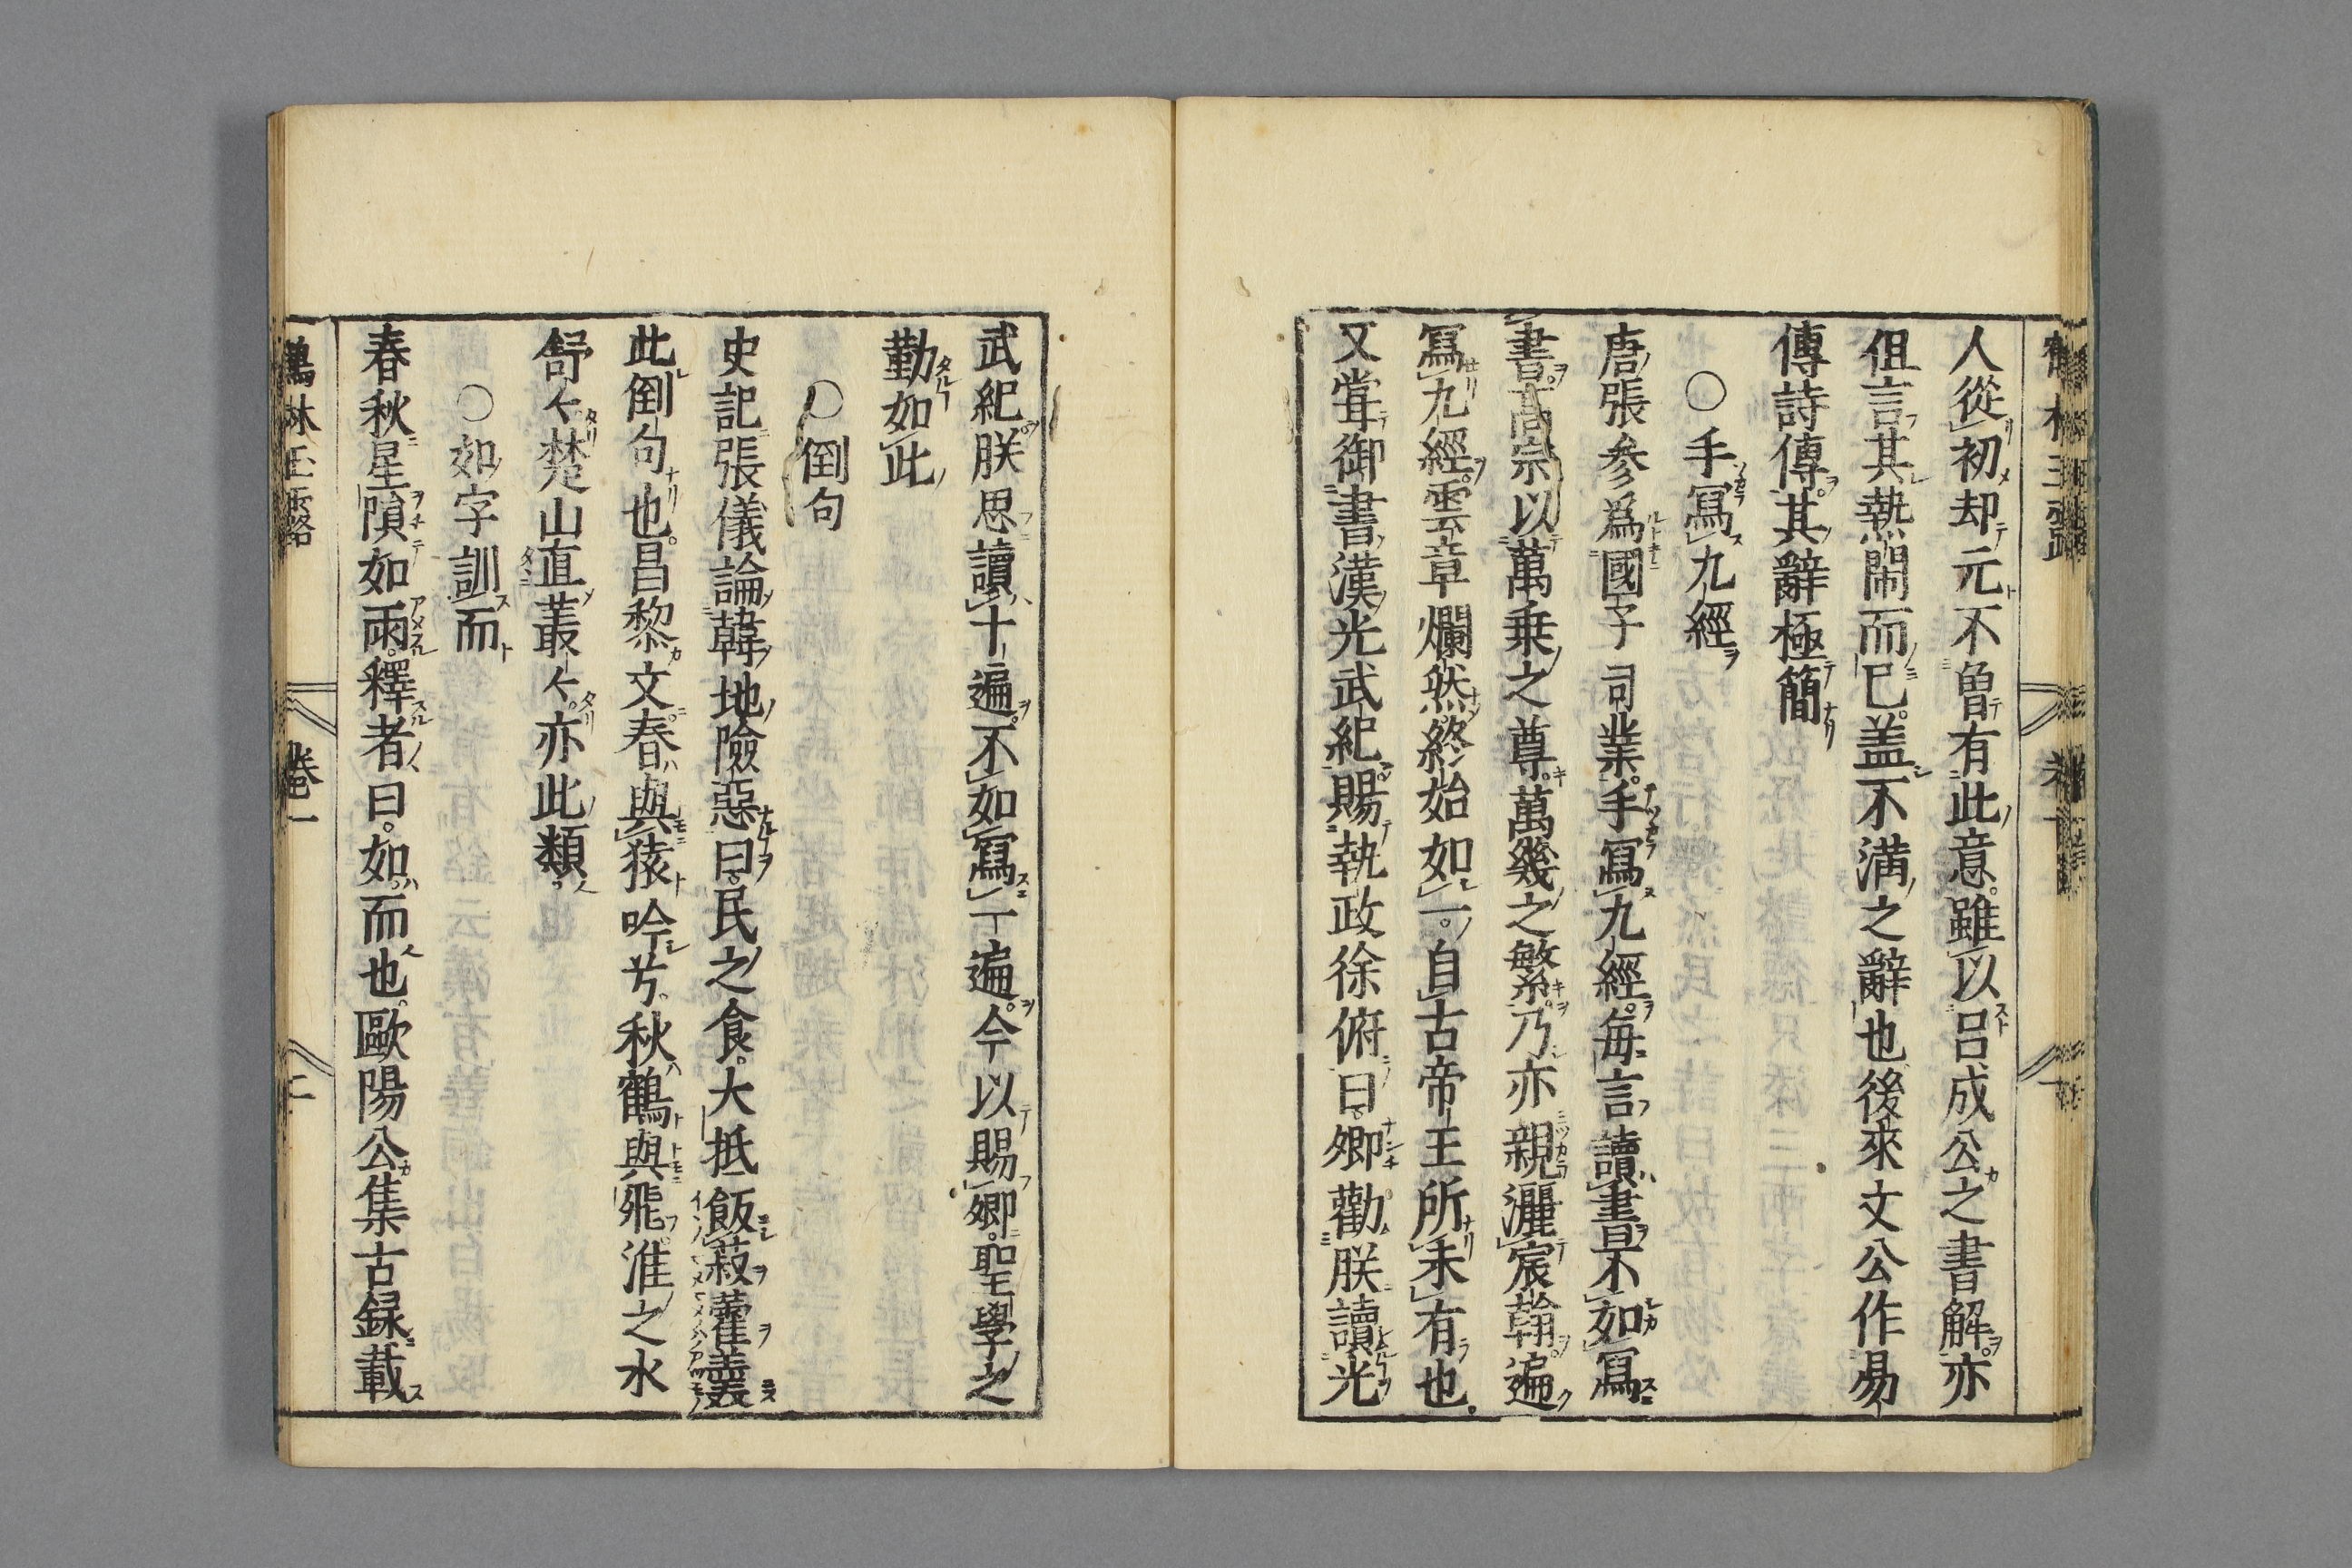 人從初却元不魯有此意雖以呂成公之書解亦
但言其熱閙而已盖不滿之辭也後來文公作易
傳詩傳其辭極簡
○手寫九經
唐張参爲國子司業手寫九經每言讀書不如寫
書高宗以萬乗之尊萬幾之繁乃亦親灑宸翰遍
寫九經雲章爛然終始如一自古帝王所未有也
又甞御書漢光武紀賜執政徐俯曰卿勸朕讀光
武紀朕思讀十遍不如寫一遍今以賜卿聖學之
勤如此
○倒句
史記張儀論韓地險惡曰民之食大抵飯菽藿羹
此倒句也昌黎文春與猿吟兮秋鶴與飛淮之水
舒々楚山直叢々亦此類
○如字訓而
春秋星隕如雨釋者曰如而也歐陽公集古録載
鶴林玉露 卷一 二